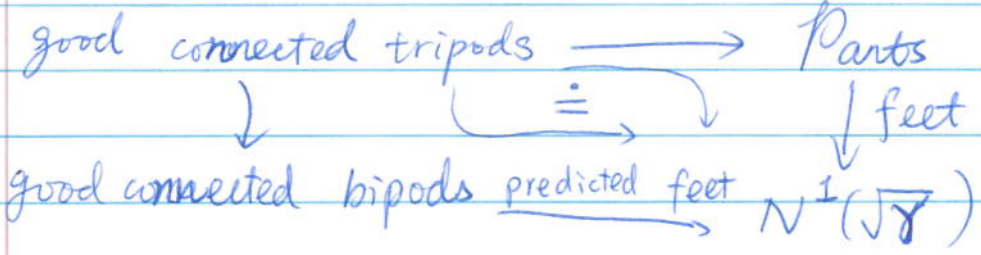 good connected tripods ⟶ Pants
↓ ≐ ↓ feet
good connected bipods predicted feet ⟶ N¹(√γ)